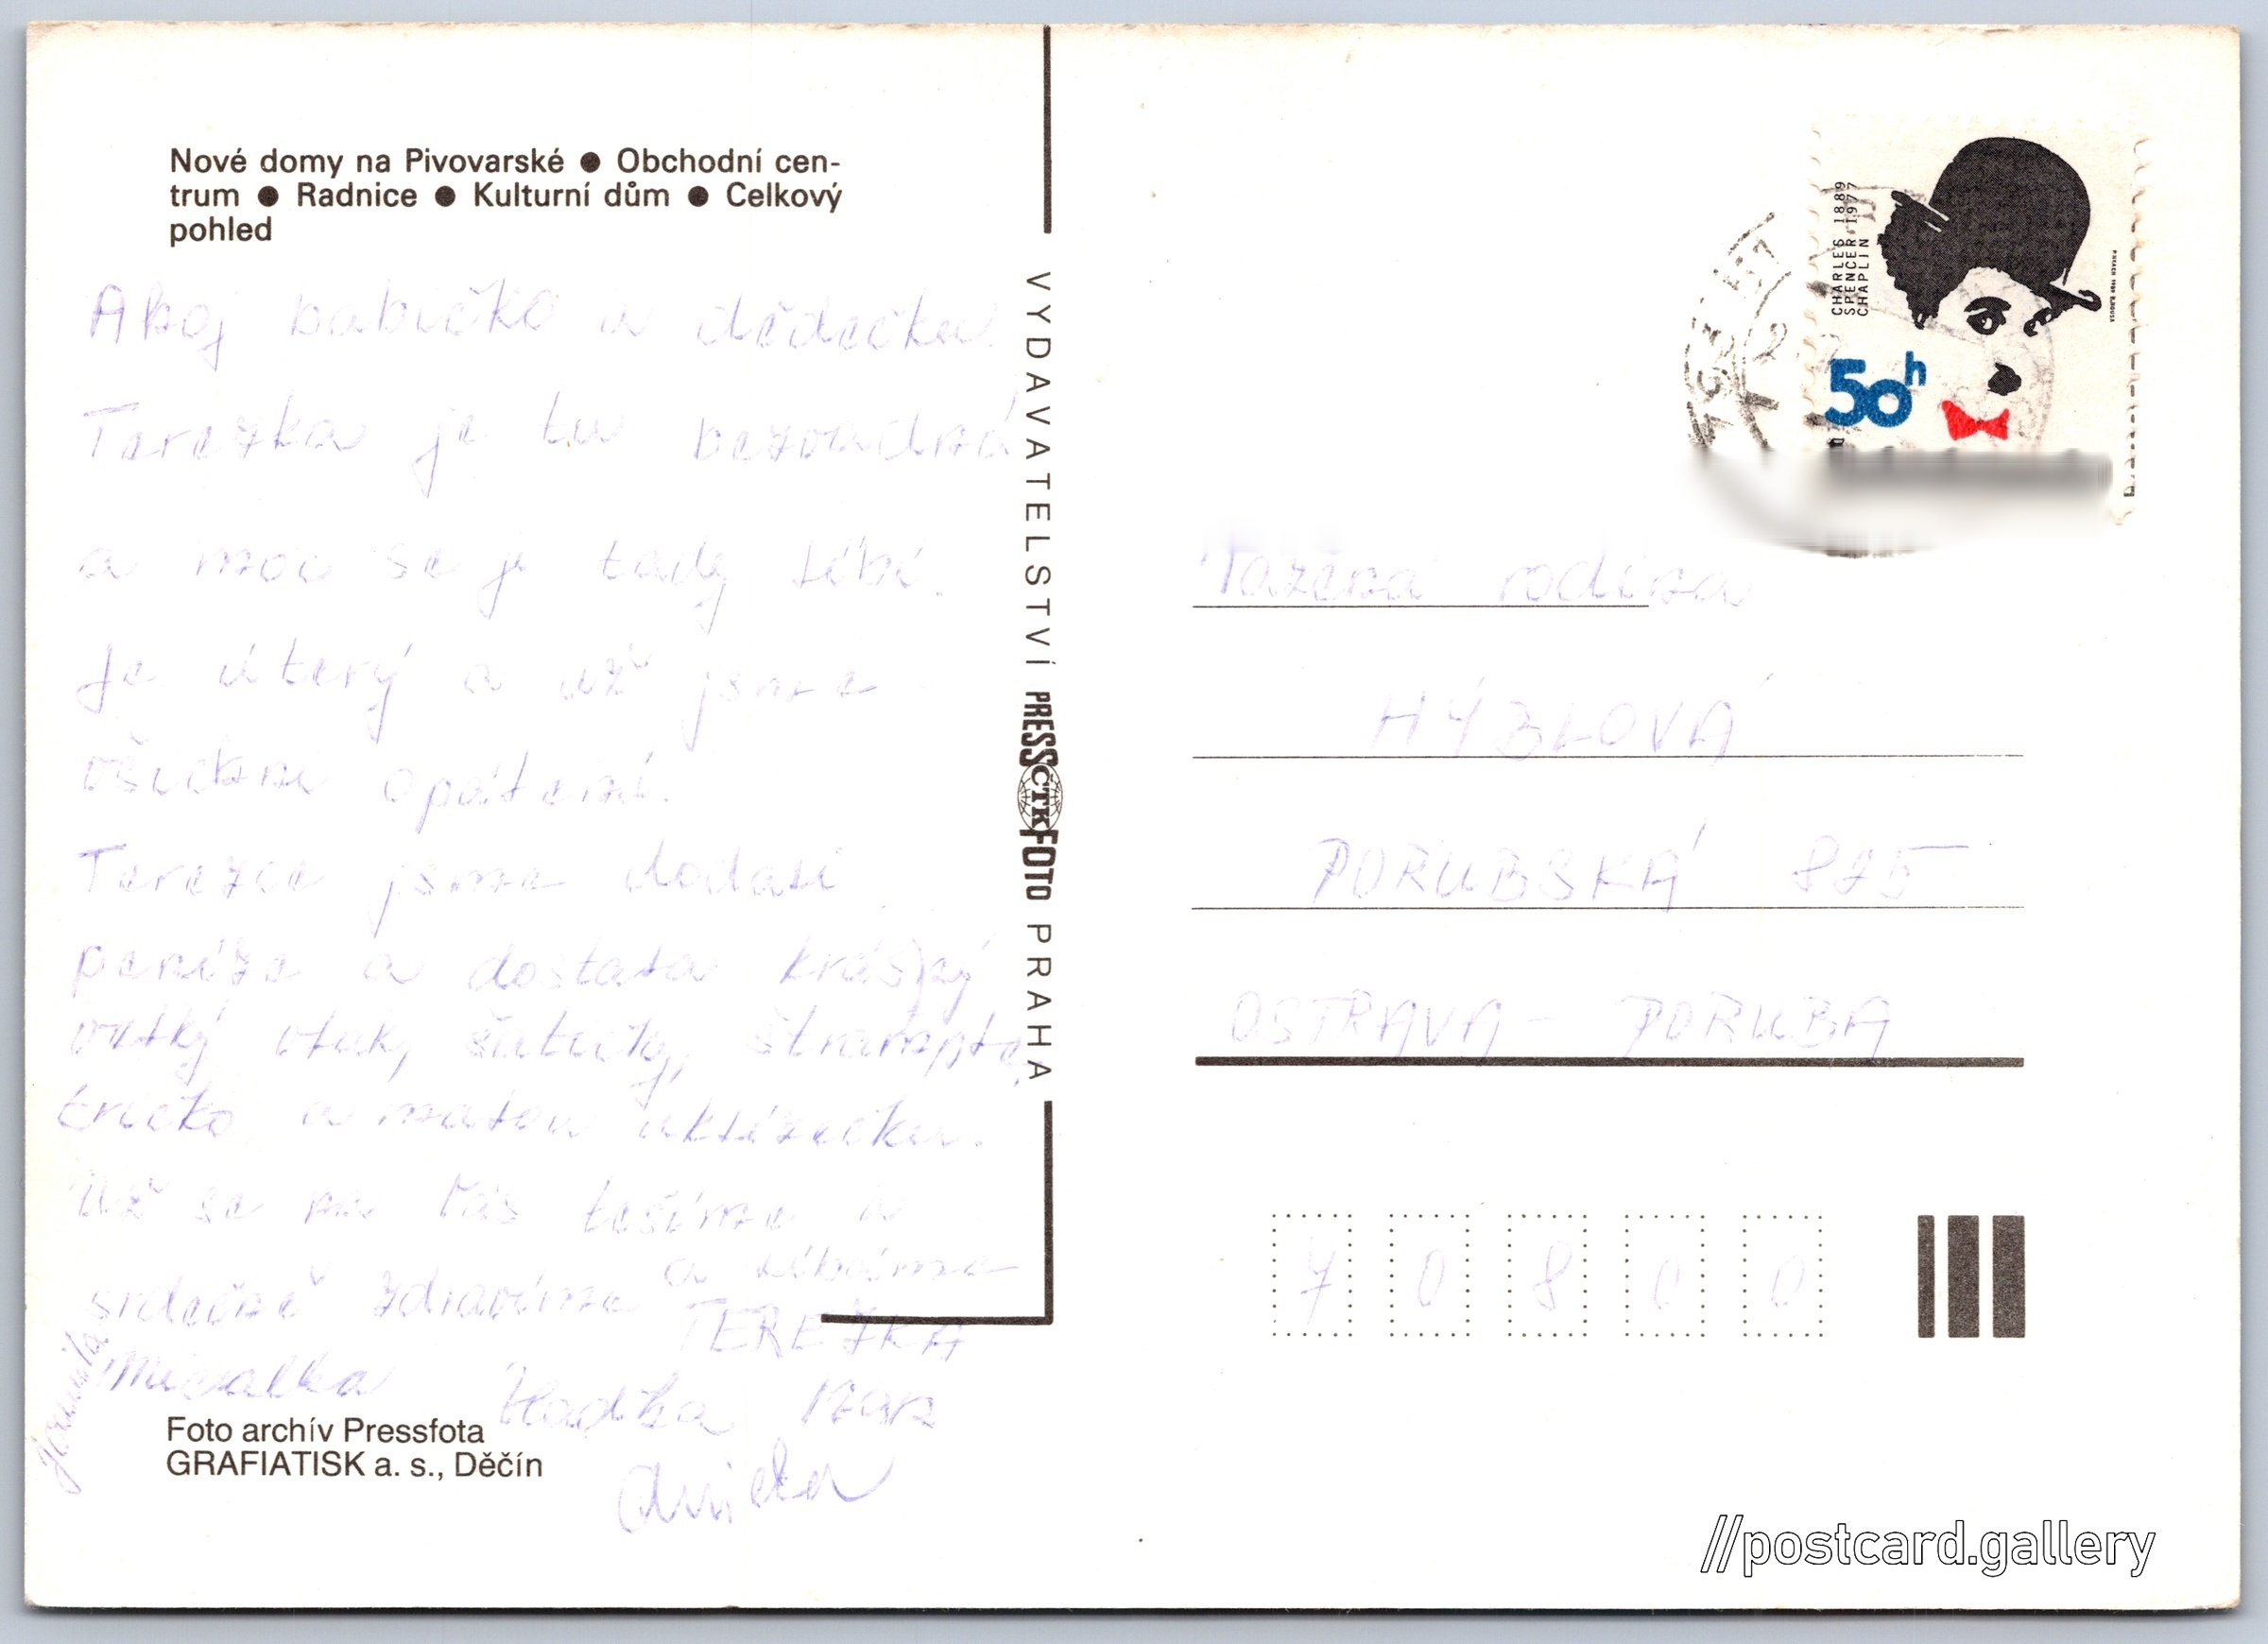 Nové domy na Pivovarské ● Obchodní cen-
trum ● Radnice ● Kulturní dům ● Celkový
pohled
Ahoj babičko a dědečku.
Terezka je tu bezvadná
a moc se jí tady líbí.
Je úterý a už jsme
všichni opálení.
Terezce jsme dodali
peníze a dostala krásný
velký vlak, šatičky, štrample,
tričko a malou uklízečku.
Už se na Vás těšíme a
srdečně zdravíme a líbáme
TEREZKA
Jarmila Michalka Hadka
VYDAVATELSTVÍ PRESSČTKFOTO PRAHA
Foto archív Pressfota
GRAFIATISK a. s., Děčín
CHARLES 1889
SPENCER 1977
CHAPLIN
50h
Vážená rodina
HÝBLOVÁ
PORUBSKÁ 825
OSTRAVA - PORUBA
70800
//postcard.gallery